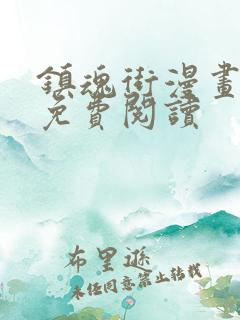 鎮魂街漫畫
免費閱讀
布里遜
未经同意禁止转载